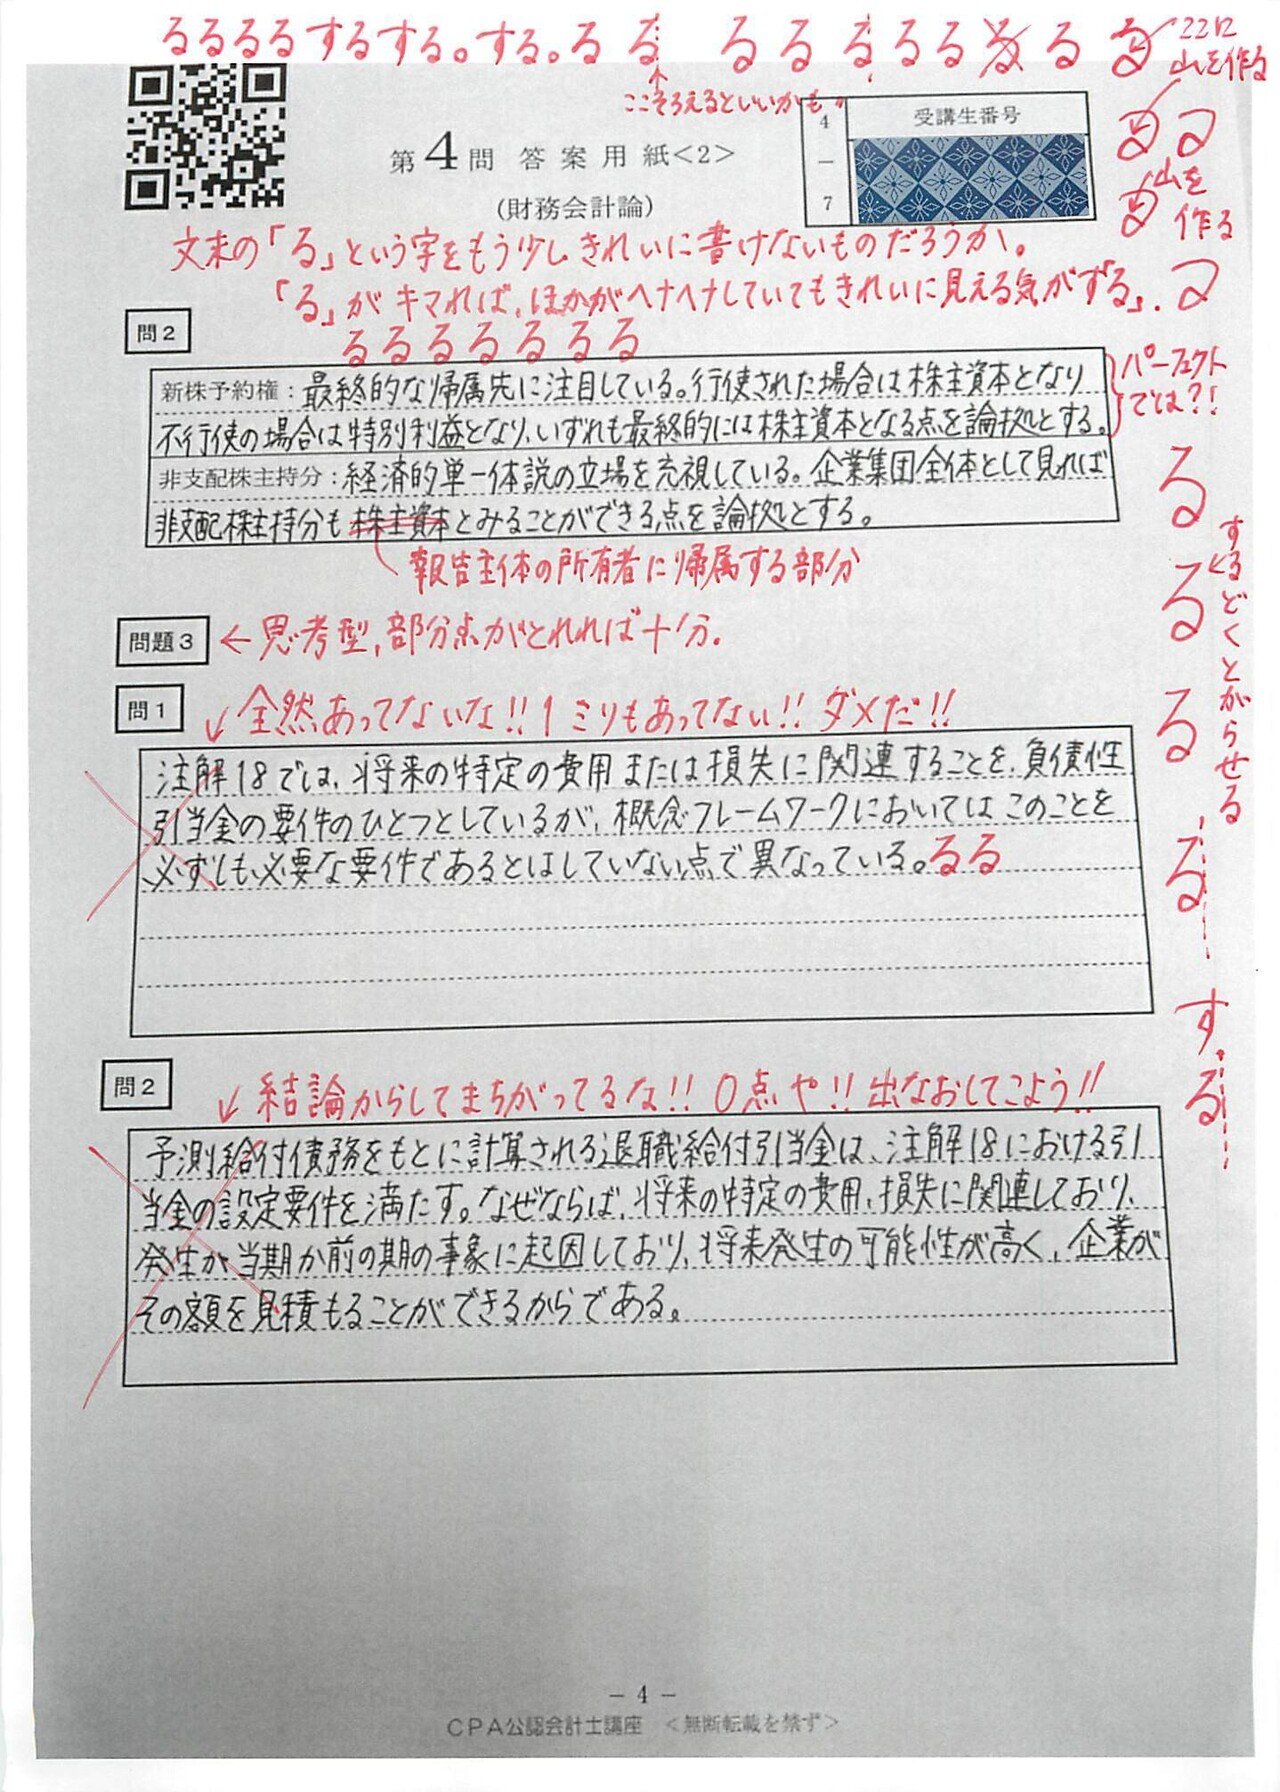 るるるるするする。する。るる るるるるるるる ここに
山を作る
ここそろえるといいかも
4
―
7
受講生番号
第4問 答案用紙<2>
(財務会計論)
山を
作る
文末の「る」という字をもう少しきれいに書けないものだろうか。
「る」がキマれば、ほかがヘナヘナしていてもきれいに見える気がする」.
問2
るるるるるるる
新株予約権：最終的な帰属先に注目している。行使された場合は株主資本となり
不行使の場合は特別利益となり、いずれも最終的には株主資本となる点を論拠とする。
パーフェクト
では?!
非支配株主持分：経済的単一体説の立場を充視している。企業集団全体として見れば
非支配株主持分も株主資本とみることができる点を論拠とする。
報告主体の所有者に帰属する部分
る
る
る
る
す。
る
するどくとがらせる
問題3
←思考型、部分点がとれれば十分.
問1
↓全然あってないな!!1ミリもあってない!!ダメだ!!
注解18では、将来の特定の費用または損失に関連することを、負債性
引当金の要件のひとつとしているが、概念フレームワークにおいてはこのことを
必ずしも必要な要件であるとはしていない点で異なっている。るる
問2
↓結論からしてまちがってるな!!0点や!!出なおしてこよう!!
予測給付債務をもとに計算される退職給付引当金は、注解18における引
当金の設定要件を満たす。なぜならば、将来の特定の費用、損失に関連しており、
発生が当期か前の期の事象に起因しており、将来発生の可能性が高く、企業が
その額を見積もることができるからである。
－4－
CPA公認会計士講座 <無断転載を禁ず>